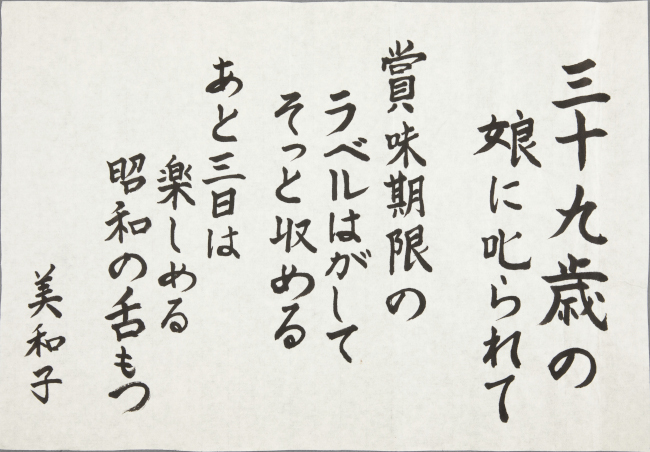 三十九歳の
娘に叱られて
賞味期限の
ラベルはがして
そっと収める
あと三日は
楽しめる
昭和の舌もつ
美和子